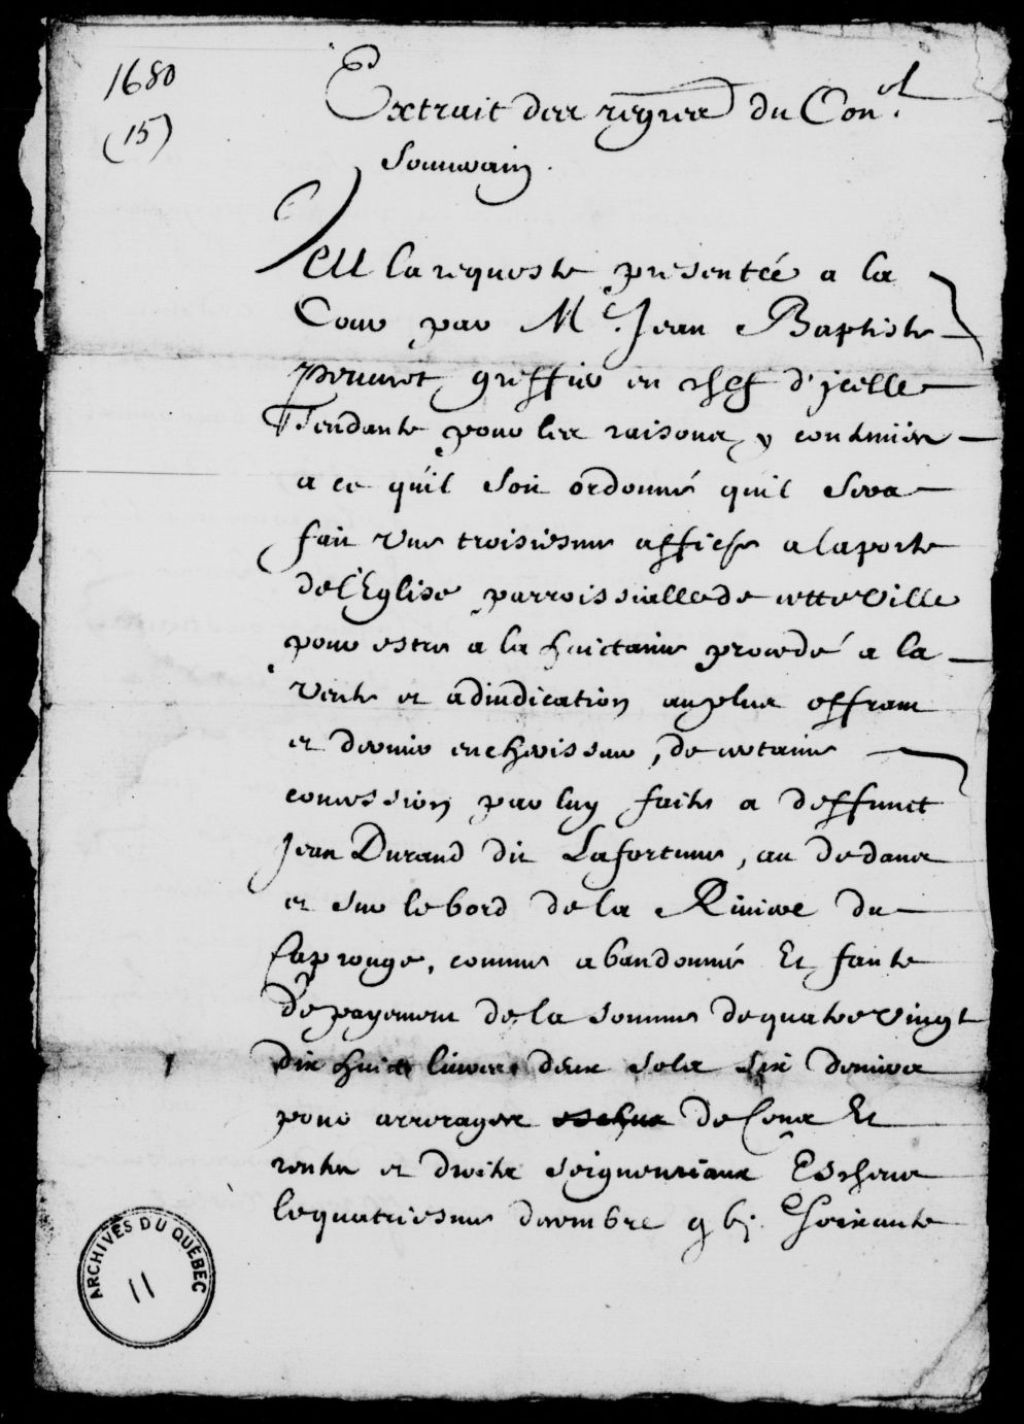 1680
(15)
Extrait des regres du Con.el
Souuerain.
VEU la requeste presentée a la
Cour par Me. Jean Baptiste
peuuret greffier en chef d'jcelle
Tendante pour les raisons y contenües
a ce qu'il Soit ordonné quil Sera
fait vne troisiesme affiche a la porte
de l'Eglise parroissialle de cette ville
pour estre a la huictaine procedé a la
vente et adiudication au plus offrant
et dernier encherisseur, de certaine
concession par luy faite a deffunct
Jean Durand dit Lafortune, au dedans
et sur le bord de la Riuiere du
Cap rouge, comme abandonnée Et faute
de payement de la somme de quatre vingt
dix huict liures deux sols six deniers
pour arrerages de Cens Et
rentes et droits seigneuriaux Escheus
le quatriesme decembre gbj. Soixante
ARCHIVES DU QUÉBEC
11